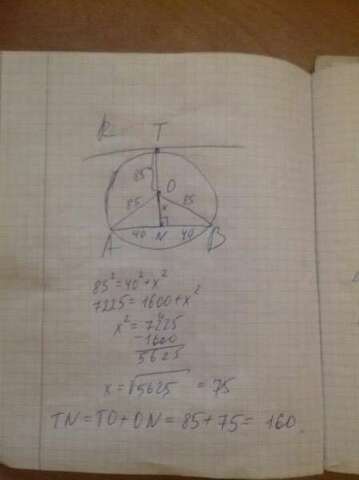 R T
85
O
85 x 85
A 40 N 40 B
85² = 40² + x²
7225 = 1600 + x²
x² = 7225
-1600
5625
x = √5625 = 75
TN = TO + ON = 85 + 75 = 160.